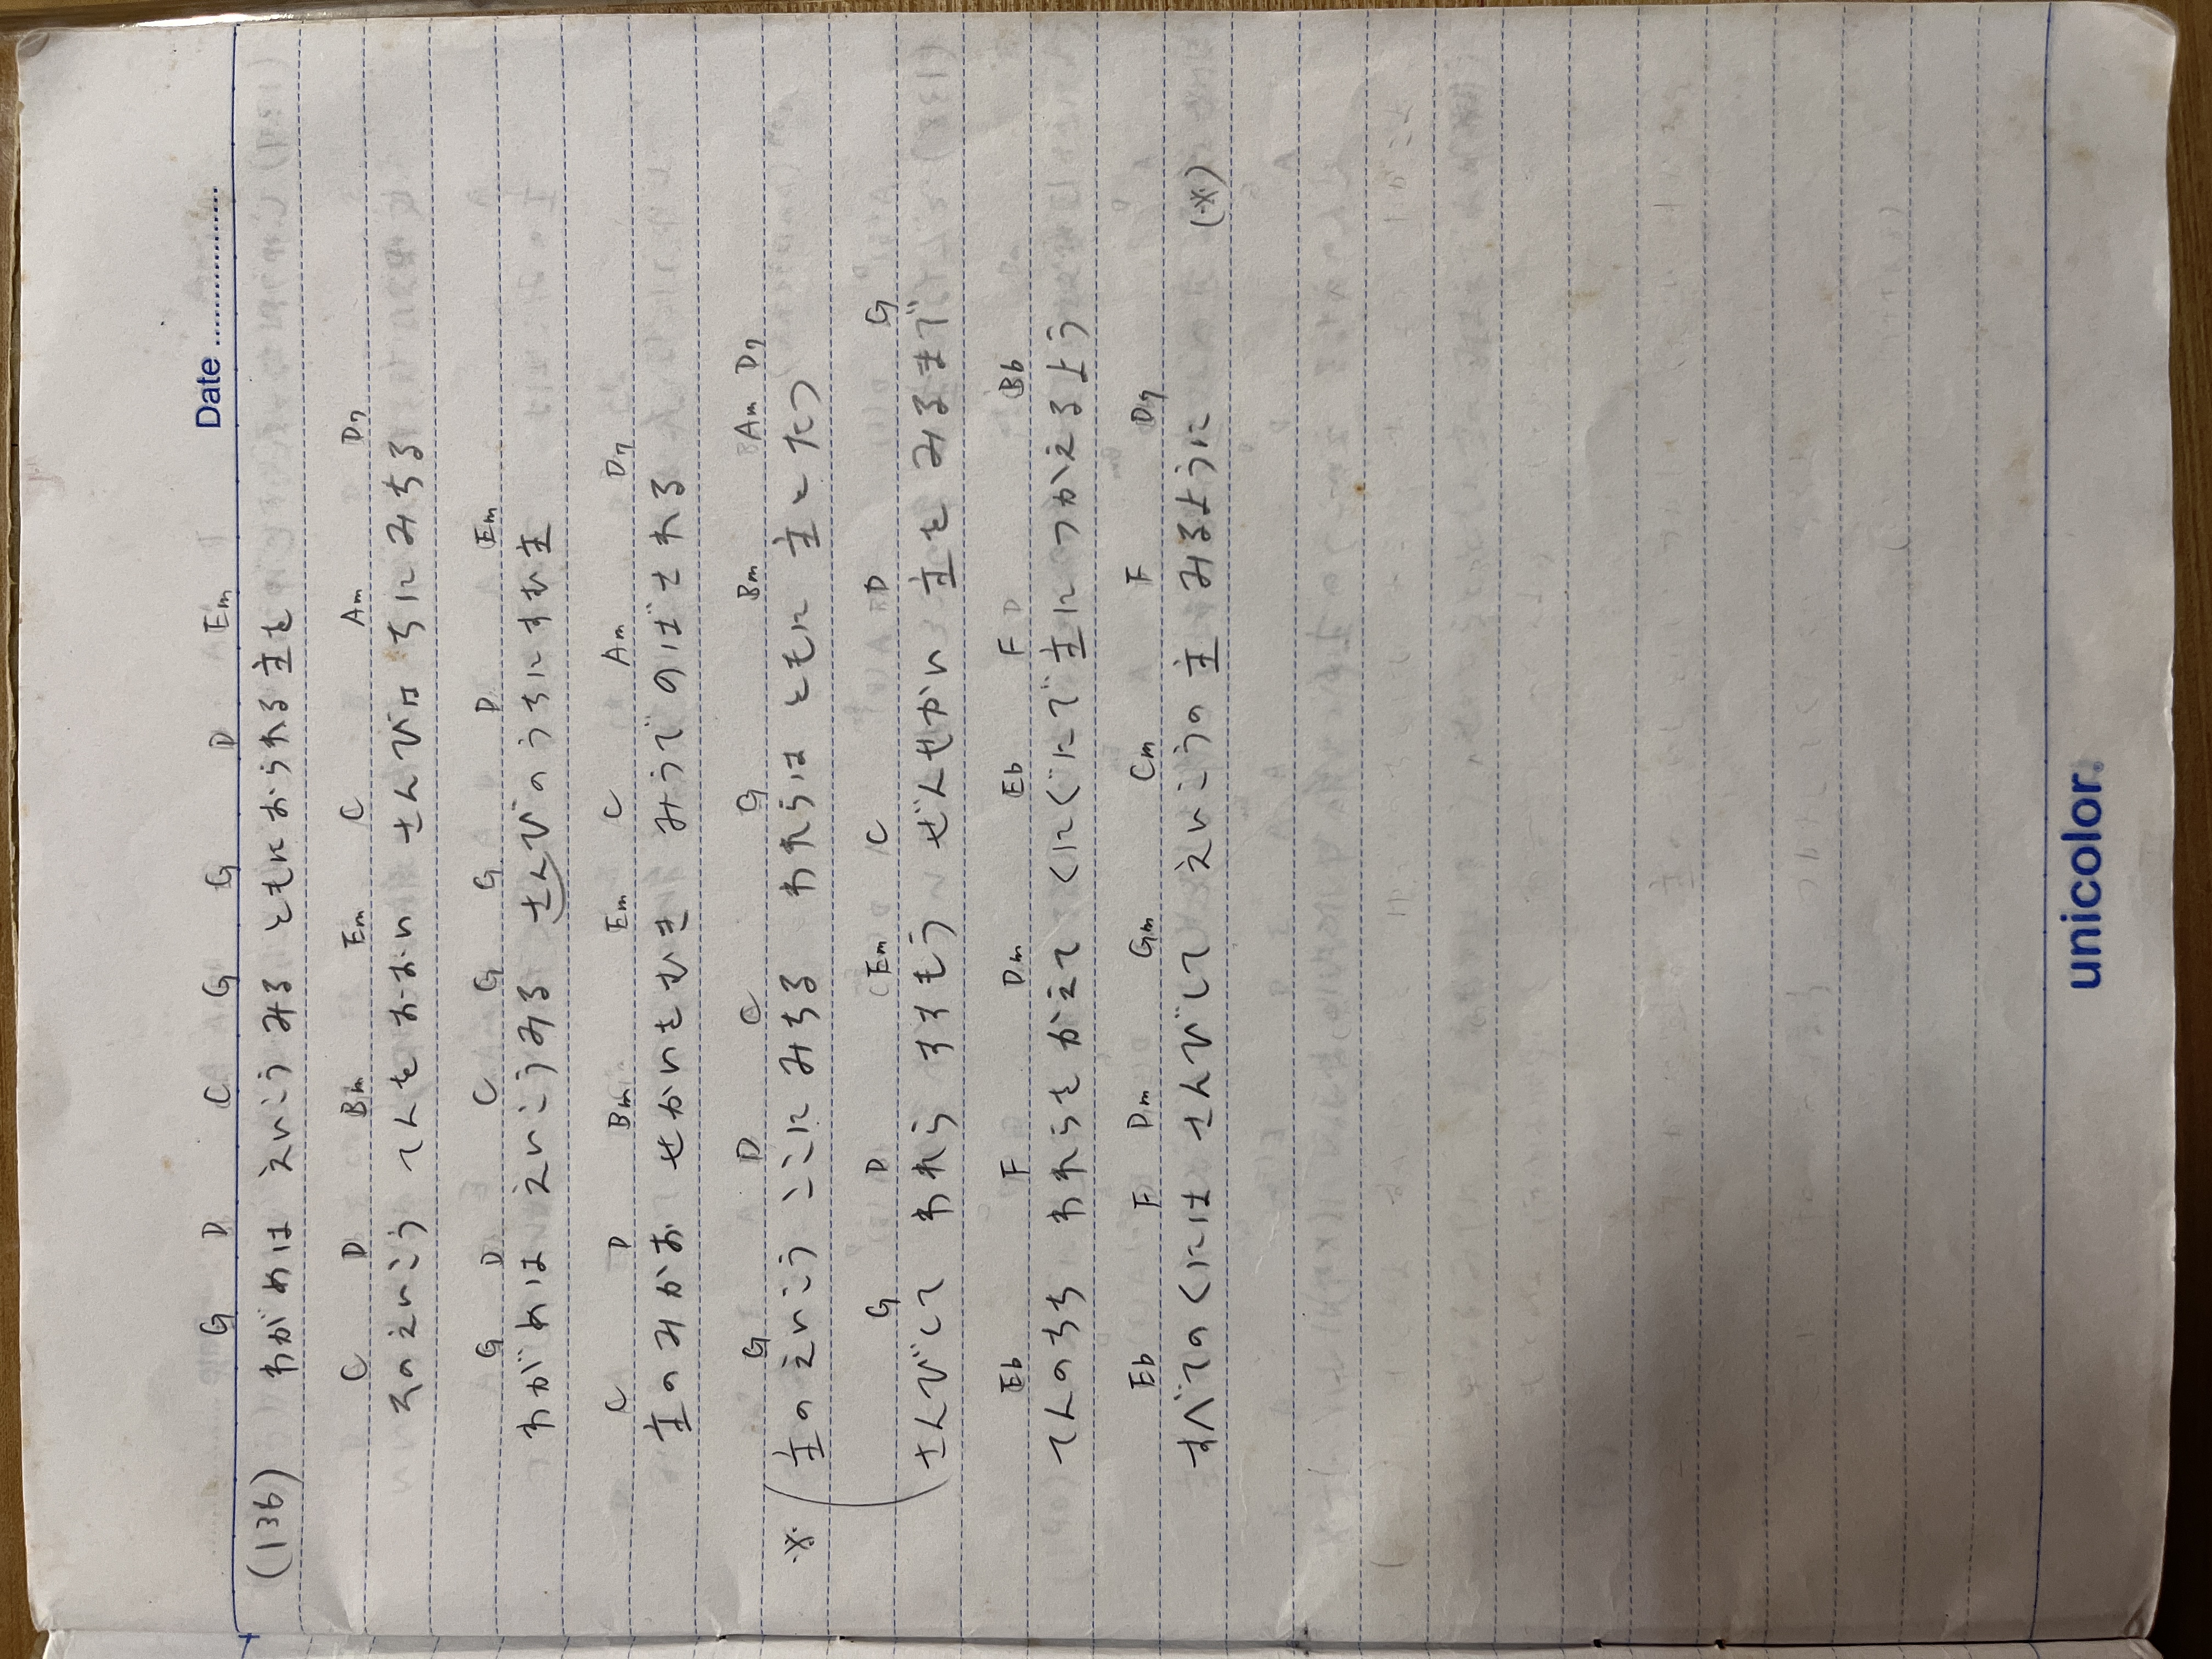 Date
G D C G G D Em
(136) わがめは えいこうみる ともにおられる主を
C D Bm Em C Am D7
そのえいこう てんをおおい さんびは ちにみちる
G D C G G D Em
わがめは えいこうみる さんびのうちにすむ主
C D Bm Em C Am D7
主のみかお せかいをむき みうでのばされる
G D C G Bm Am D7
※ 主のえいこう ここにみちる われらは ともに 主とたつ
G D (Em C D G
さんびして われら すすもう ぜんせかい 主を みるまで
Eb F Dm Eb F Bb
てんのちち われらをかえて くにぐにで 主に つかえるよう
Eb F Dm Gm Cm F D7
すべてのくには さんびして えいこうの 主 みるように (※)
unicolor.